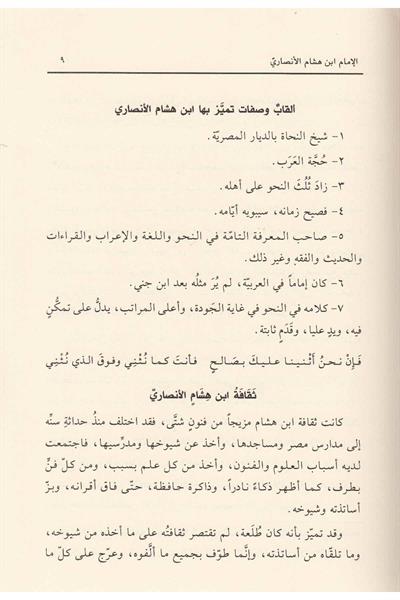 الإمام ابن هشام الأنصاريّ ٩
ألقابٌ وصفات تميَّز بها ابن هشام الأنصاري
١- شيخ النحاة بالديار المصريّة.
٢- حُجَّة العَرَب.
٣- زادَ ثُلُثَ النحو على أهله.
٤- فصيح زمانه، سيبويه أيّامه.
٥- صاحب المعرفة التامّة في النحو واللغة والإعراب والقراءات
والحديث والفقهِ وغير ذلك.
٦- كان إماماً في العربيّة، لم يُرَ مثلُه بعد ابن جني.
٧- كلامه في النحو في غاية الجَودة، وأعلى المراتب، يدلُّ على تمكُّنٍ
فيه، ويدٍ عليا، وقَدَمٍ ثابتة.
فَإِنْ نحنُ أَثْنينا عليكَ بصَالحٍ فأنتَ كما نُثْنِي وفوقَ الذي نُثْنِي
ثَقَافَةُ ابن هِشَامٍ الأنصاريّ
كانت ثقافة ابن هشام مزيجاً من فنونٍ شتَّى، فقد اختلف منذُ حداثةِ سنِّه
إلى مدارس مصر ومساجدها، وأخذ عن شيوخها ومدرِّسيها، فاجتمعت
لديه أسباب العلوم والفنون، وأخذ من كل علم بسبب، ومن كلّ فنٍّ
بطرف، كما أظهر ذكاءً نادراً، وذاكرة حافظة، حتّى فاق أقرانه، وبزّ
أساتذته وشيوخه.
وقد تميّز بأنه كان طُلَعة، لم تقتصر ثقافتُه على ما أخذه من شيوخه،
وما تلقّاه من أساتذته، وإنَّما طوّف بجميع ما ألّفوه، وعرّج على كلّ ما